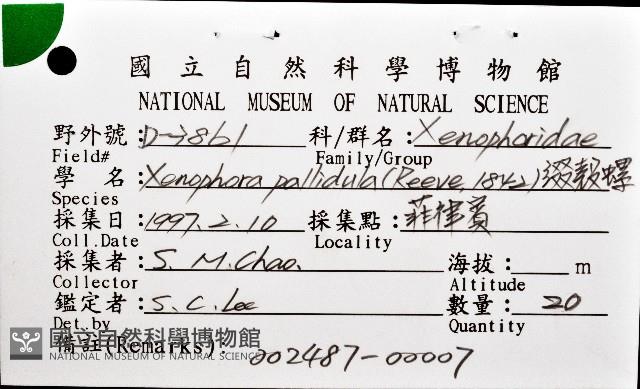 國立自然科學博物館
NATIONAL MUSEUM OF NATURAL SCIENCE
野外號: 科/群名: Xenophoridae
Field# Family/Group
學 名: Xenophora pallidula (Reeve, 1842) 綴殼螺
Species
採集日: 1997.2.10 採集點: 菲律賓
Coll.Date Locality
採集者: S. M. Chao. 海拔: m
Collector Altitude
鑑定者: S. C. Lee 數量: 20
Det.by Quantity
備註(Remarks): 002487-00007
國立自然科學博物館
NATIONAL MUSEUM OF NATURAL SCIENCE